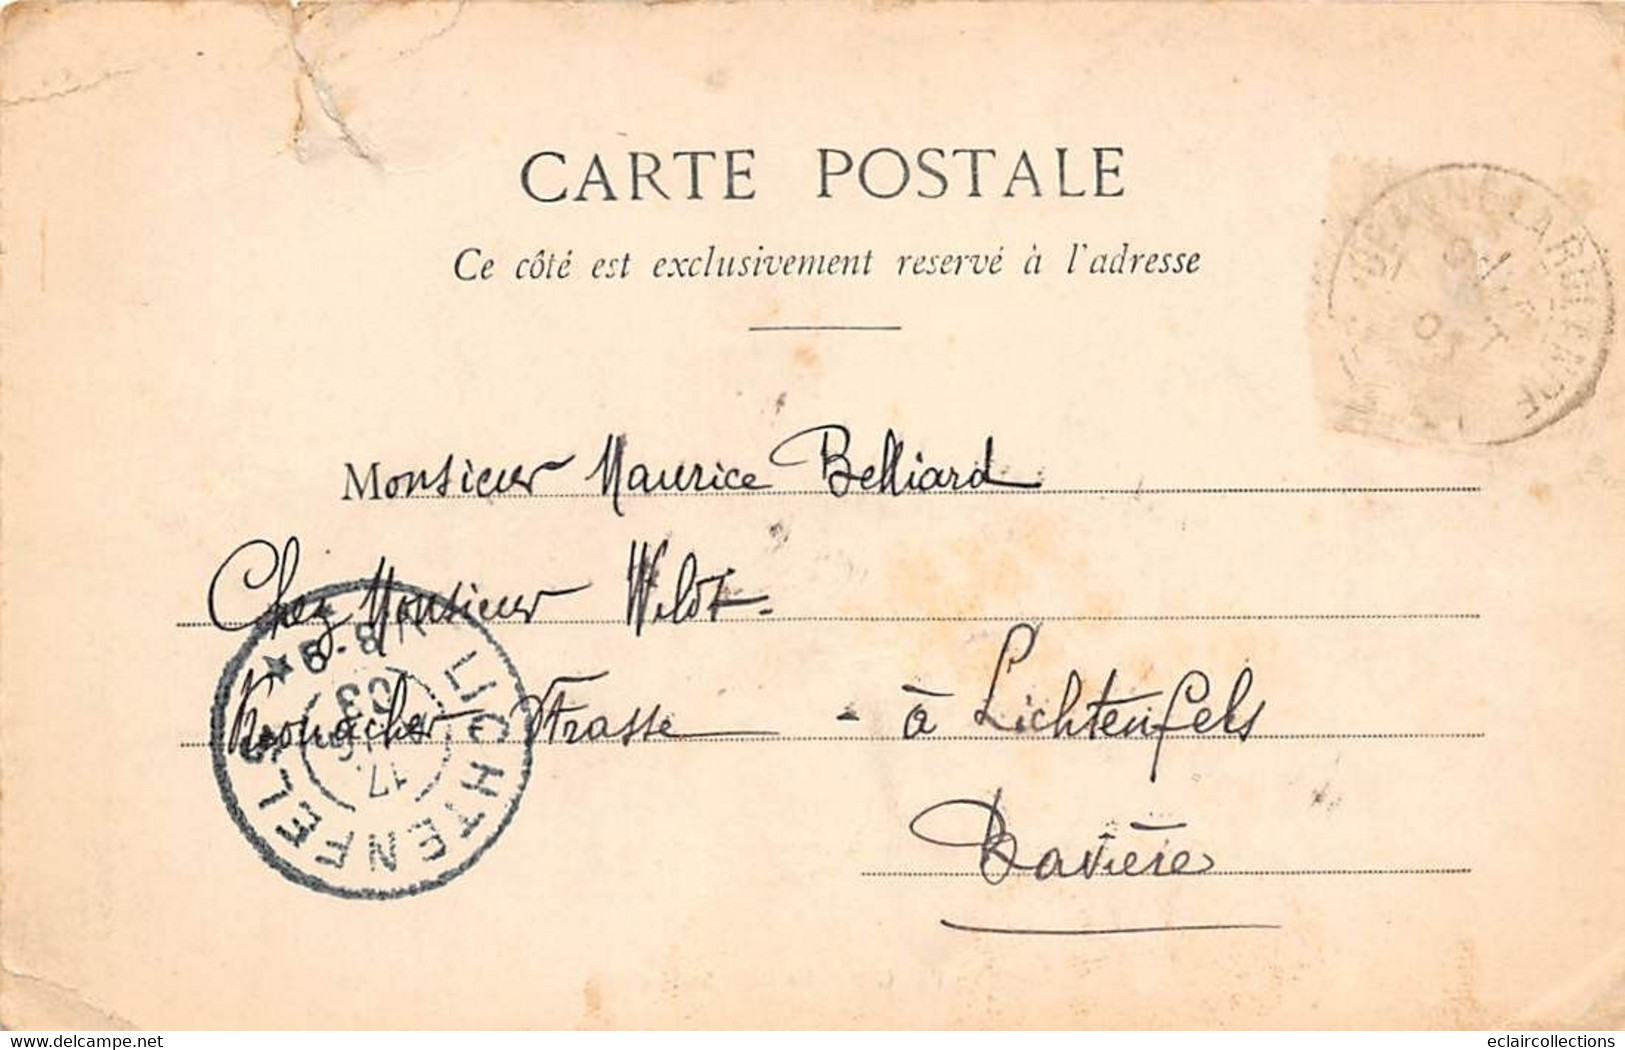 CARTE POSTALE
Ce côté est exclusivement reservé à l'adresse
Monsieur Maurice Belliard
Chez Monsieur Wildt
Kronacher Strasse - à Lichtenfels
Bavière
LICHTENFELS
V 8-9
17.
03
eclaircollections